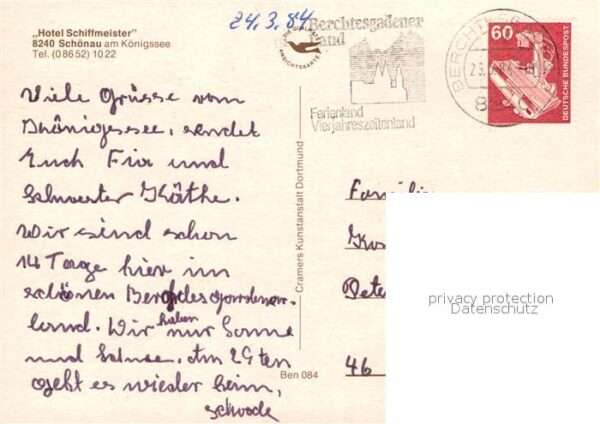 „Hotel Schiffmeister"
8240 Schönau am Königssee
Tel. (0 86 52) 10 22
24.3.84
Berchtesgadener
Land
Ferienland
Vierjahreszeitenland
BERCHT
8
60
DEUTSCHE BUNDESPOST
Viele Grüsse vom
Königssee, sendet
Euch Frix und
Schwester Käthe.
Wir sind schon
14 Tage hier im
schönen Berchdesgardener-
land. Wir haben nur Sonne
und Schnee. Am 29ten
geht es wieder heim,
schade
Cramers Kunstanstalt Dortmund
Ben 084
Familie
Kos
Pete
46
privacy protection
Datenschutz